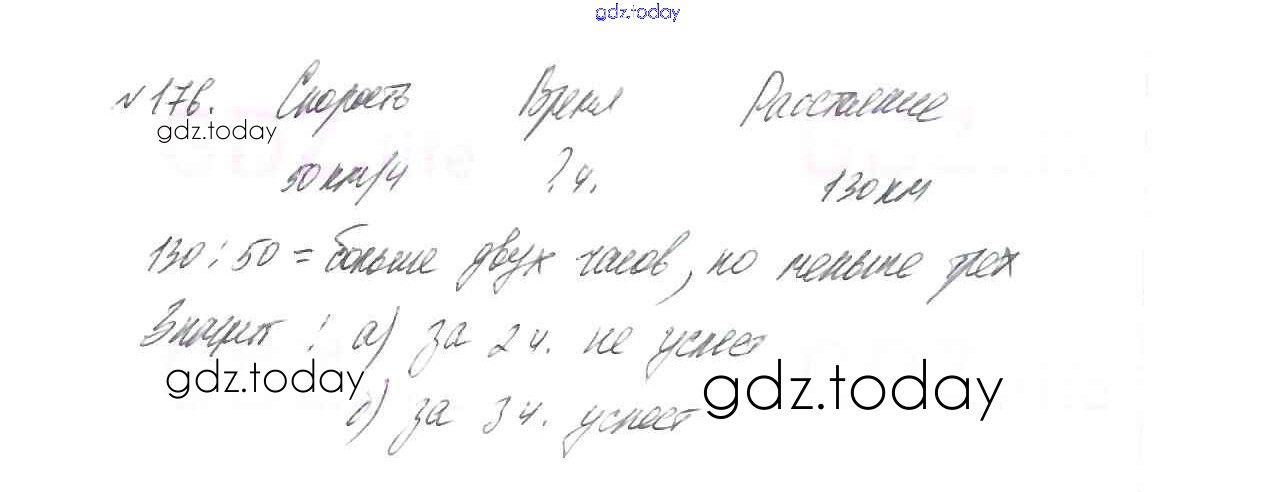 gdz.today
№176. Скорость Время Расстояние
gdz.today
50 км/ч ? ч. 130 км
130 : 50 = больше двух часов, но меньше трех
Значит : а) за 2 ч. не успеет
gdz.today
gdz.today
б) за 3 ч. успеет